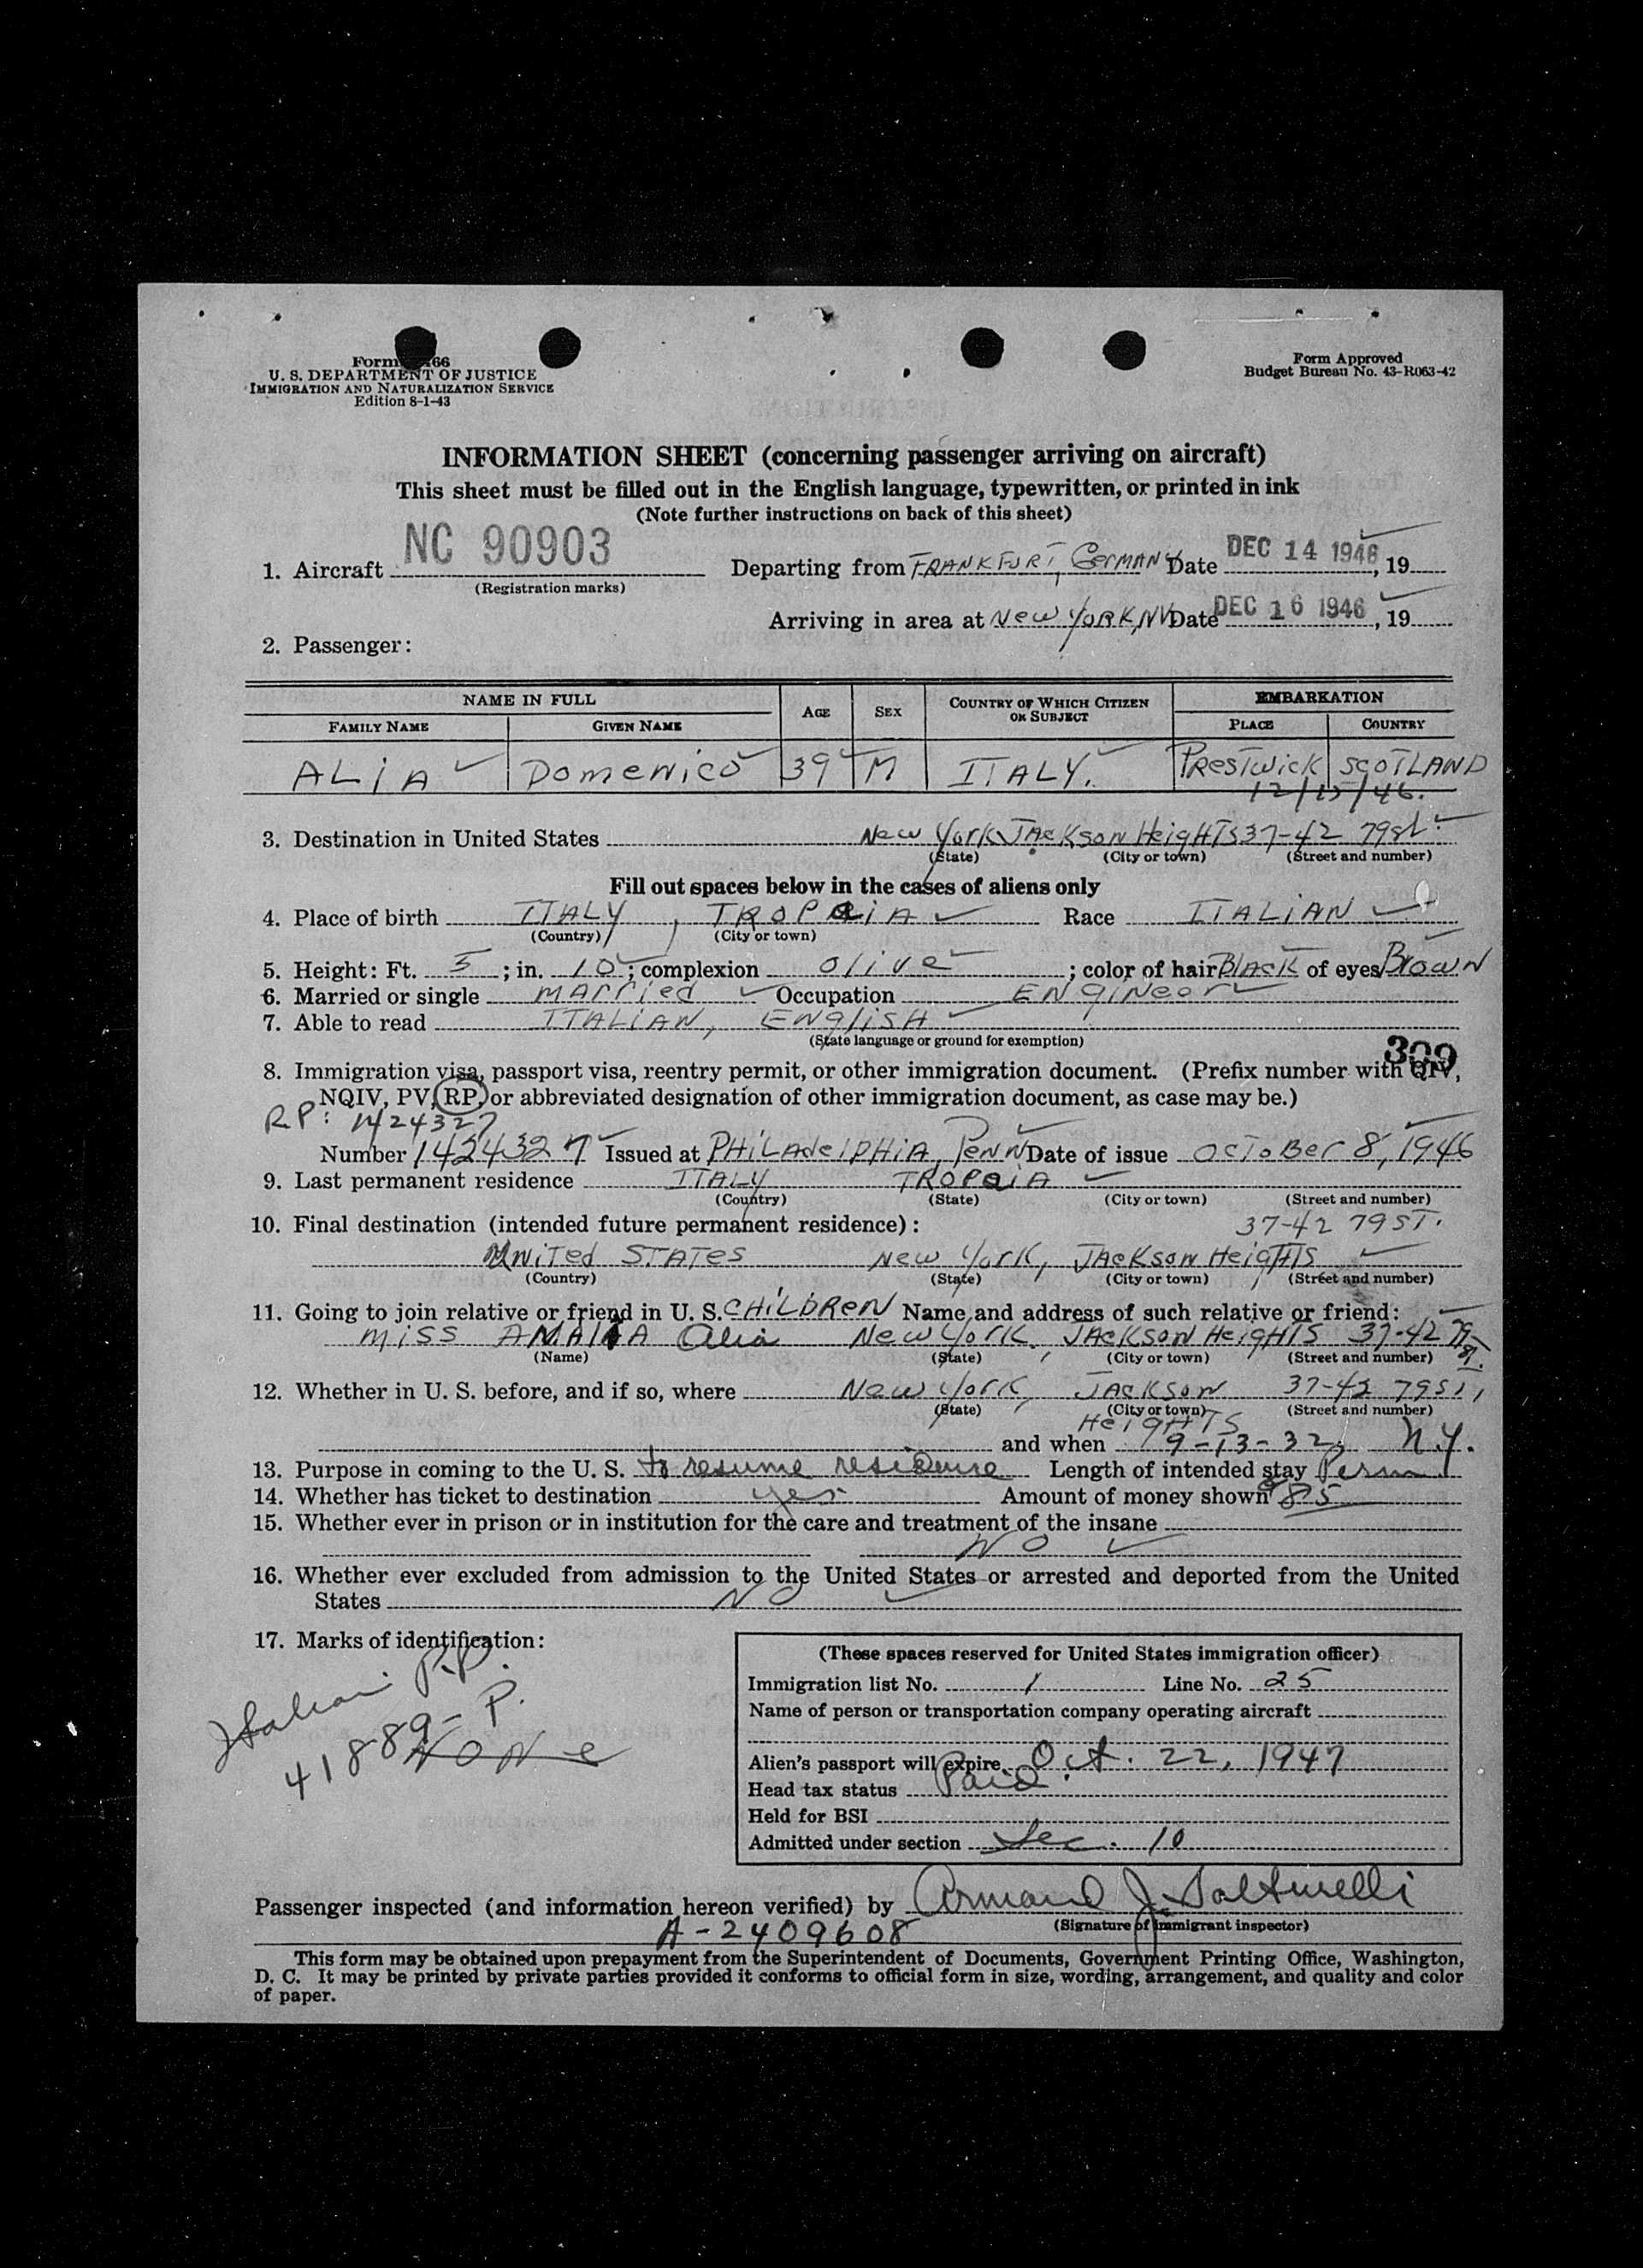 Form 66
U. S. DEPARTMENT OF JUSTICE
IMMIGRATION AND NATURALIZATION SERVICE
Edition 8-1-43
Form Approved
Budget Bureau No. 43-R063-42
INFORMATION SHEET (concerning passenger arriving on aircraft)
This sheet must be filled out in the English language, typewritten, or printed in ink
(Note further instructions on back of this sheet)
1. Aircraft NC 90903 Departing from FRANKFURT, GERMANY Date DEC 14 1946, 19
(Registration marks)
Arriving in area at New York, NY Date DEC 16 1946, 19
2. Passenger:
NAME IN FULL AGE SEX COUNTRY OF WHICH CITIZEN OR SUBJECT EMBARKATION
FAMILY NAME GIVEN NAME PLACE COUNTRY
ALiA Domenico 39 M ITALY. PResTwick SCOTLAND
12/15/46.
3. Destination in United States New York JAcKson HeigHTS 37-42 79 st.
(State) (City or town) (Street and number)
Fill out spaces below in the cases of aliens only
4. Place of birth ITALY, TROPaiA Race ITALiAN
(Country) (City or town)
5. Height: Ft. 5; in. 10; complexion olive; color of hair BlAcK of eyes BrowN
6. Married or single mArried Occupation ENgiNeer
7. Able to read ITALiAN, ENgliSH
(State language or ground for exemption)
399
8. Immigration visa, passport visa, reentry permit, or other immigration document. (Prefix number with QIV,
NQIV, PV, RP, or abbreviated designation of other immigration document, as case may be.)
R.P: 1424327
Number 1424327 Issued at PHiLAdelPHiA, PeNN Date of issue OcToBer 8, 1946
9. Last permanent residence ITALY TROPaiA
(Country) (State) (City or town) (Street and number)
10. Final destination (intended future permanent residence): 37-42 79 ST.
UNiTed STATes New York, JAcKson HeigHTS
(Country) (State) (City or town) (Street and number)
11. Going to join relative or friend in U. S. CHiLDReN Name and address of such relative or friend:
Miss AMAliA Alia New York, JAcKSoN HeigHTS 37-42 79 st.
(Name) (State) (City or town) (Street and number)
12. Whether in U. S. before, and if so, where New York, JAcKSoN 37-42 79 ST,
(State) (City or town) (Street and number)
HeigHTS
and when 9-13-32, N.Y.
13. Purpose in coming to the U. S. to resume residence Length of intended stay Perm
14. Whether has ticket to destination yes Amount of money shown 85
15. Whether ever in prison or in institution for the care and treatment of the insane
NO
16. Whether ever excluded from admission to the United States or arrested and deported from the United
States NO
17. Marks of identification:
Italian P.P.
41889-P.
NoNe
(These spaces reserved for United States immigration officer)
Immigration list No. 1 Line No. 25
Name of person or transportation company operating aircraft
Alien's passport will expire Oct. 22, 1947
Head tax status Paid
Held for BSI
Admitted under section Sec. 10
Passenger inspected (and information hereon verified) by Armand J.
(Signature of immigrant inspector)
A-2409608
This form may be obtained upon prepayment from the Superintendent of Documents, Government Printing Office, Washington,
D. C. It may be printed by private parties provided it conforms to official form in size, wording, arrangement, and quality and color
of paper.